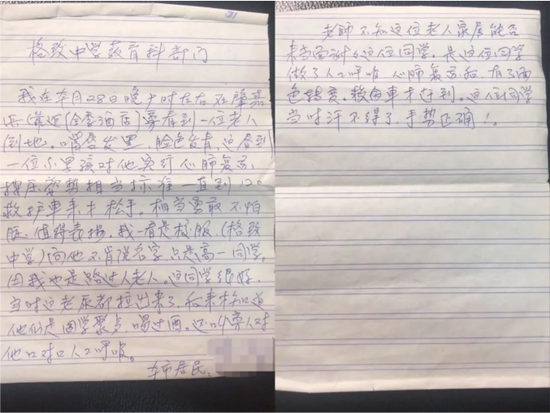 格致中学教育科部门
我在本月28日晚上时左右在肇嘉
浜附近(全季酒店)亲看到一位老人
倒地。嘴唇发黑,脸色发青,这看到
一位小男孩对他实行心肺复苏,
按压姿势相当标准一直到120
救护车来才松手。相当勇敢不怕
脏、值得表扬。我一看是校服(格致
中学)问他不肯说名字只是高一同学
因我也是路过人老人。这同学很好,
当时这老尿都拉出来了,后来才知道
他们是同学聚会喝过酒,还叫旁人对
他口对口人工呼吸。
市居民
老师不知这位老人家属能否
来当面谢这位同学,是这位同学
做了人工呼吸 心肺复苏,有了面
色转变,救护车来赶到。这位同学
当时汗不得了,手势正确!。